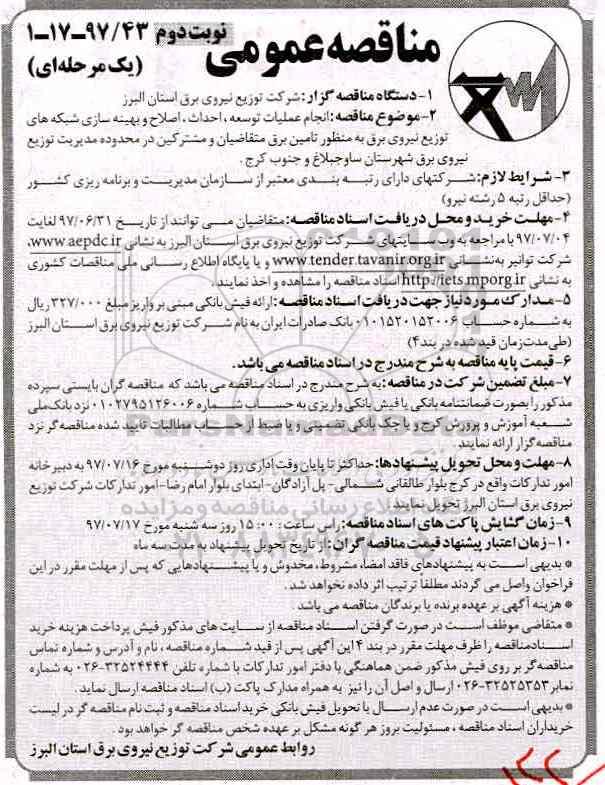 مناقصه عمومی
نوبت دوم ۹۷/۴۳-۱۷-۱
(یک مرحله‌ای)
۱- دستگاه مناقصه گزار: شرکت توزیع نیروی برق استان البرز
۲- موضوع مناقصه: انجام عملیات توسعه، احداث، اصلاح و بهینه سازی شبکه های
توزیع نیروی برق به منظور تامین برق متقاضیان و مشترکین در محدوده مدیریت توزیع
نیروی برق شهرستان ساوجبلاغ و جنوب کرج.
۳- شرایط لازم: شرکتهای دارای رتبه بندی معتبر از سازمان مدیریت و برنامه ریزی کشور
(حداقل رتبه ۵ رشته نیرو)
۴- مهلت خرید و محل دریافت اسناد مناقصه: متقاضیان می توانند از تاریخ ۹۷/۰۶/۳۱ لغایت
۹۷/۰۷/۰۴ با مراجعه به وب سایتهای شرکت توزیع نیروی برق استان البرز به نشانی www.aepdc.ir،
شرکت توانیر به نشانی www.tender.tavanir.org.ir و یا پایگاه اطلاع رسانی ملی مناقصات کشوری
به نشانی http://iets.mporg.ir اسناد مناقصه را مشاهده و اخذ نمایند.
۵- مدارک مورد نیاز جهت دریافت اسناد مناقصه: ارائه فیش بانکی مبنی بر واریز مبلغ ۳۲۷/۰۰۰ ریال
به شماره حساب ۰۱۰۱۵۲۰۱۵۲۰۰۶ بانک صادرات ایران به نام شرکت توزیع نیروی برق استان البرز
(طی مدت زمان قید شده در بند ۴)
۶- قیمت پایه مناقصه به شرح مندرج در اسناد مناقصه می باشد.
۷- مبلغ تضمین شرکت در مناقصه: به شرح مندرج در اسناد مناقصه می باشد که مناقصه گران بایستی سپرده
مذکور را بصورت ضمانتنامه بانکی یا فیش بانکی واریزی به حساب شماره ۰۱۰۲۷۹۵۱۲۶۰۰۶ نزد بانک ملی
شعبه آموزش و پرورش کرج و یا چک بانکی تضمینی و یا ضبط از حساب مطالبات تایید شده مناقصه گر نزد
مناقصه گزار ارائه نمایند.
۸- مهلت و محل تحویل پیشنهادها: حداکثر تا پایان وقت اداری روز دوشنبه مورخ ۹۷/۰۷/۱۶ به دبیرخانه
امور تدارکات واقع در کرج بلوار طالقانی شمالی- پل آزادگان- ابتدای بلوار امام رضا- امور تدارکات شرکت توزیع
نیروی برق استان البرز تحویل نمایند.
۹- زمان گشایش پاکت های اسناد مناقصه: راس ساعت ۱۵:۰۰ روز سه شنبه مورخ ۹۷/۰۷/۱۷
۱۰- زمان اعتبار پیشنهاد قیمت مناقصه گران: از تاریخ تحویل پیشنهاد به مدت سه ماه
* بدیهی است به پیشنهادهای فاقد امضا، مشروط، مخدوش و یا پیشنهادهایی که پس از مهلت مقرر در این
فراخوان واصل می گردند مطلقا ترتیب اثر داده نخواهد شد.
* هزینه آگهی بر عهده برنده یا برندگان مناقصه می باشد.
* متقاضی موظف است در صورت گرفتن اسناد مناقصه از سایت های مذکور فیش پرداخت هزینه خرید
اسناد مناقصه را ظرف مهلت مقرر در بند ۴ این آگهی پس از قید شماره مناقصه، نام و آدرس و شماره تماس
مناقصه گر بر روی فیش مذکور ضمن هماهنگی با دفتر امور تدارکات با شماره تلفن ۳۲۵۲۴۴۴۴-۰۲۶ به شماره
نمابر ۳۲۵۲۵۳۵۳-۰۲۶ ارسال و اصل آن را نیز به همراه مدارک پاکت (ب) اسناد مناقصه ارسال نماید.
* بدیهی است در صورت عدم ارسال یا تحویل فیش بانکی خرید اسناد مناقصه و ثبت نام مناقصه گر در لیست
خریداران اسناد مناقصه، مسئولیت بروز هر گونه مشکل بر عهده شخص مناقصه گر خواهد بود.
روابط عمومی شرکت توزیع نیروی برق استان البرز